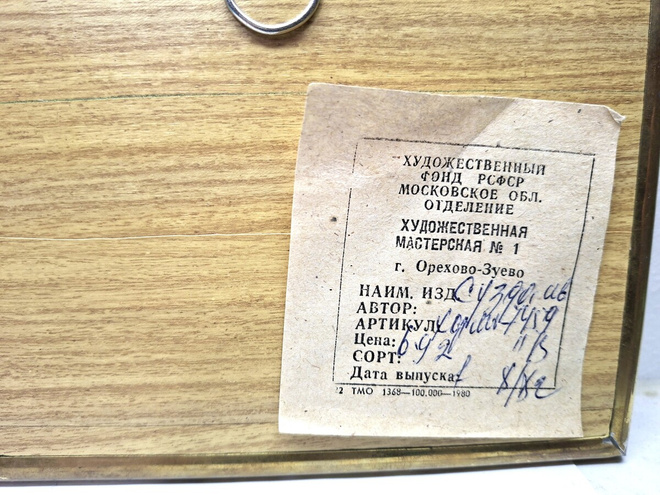 ХУДОЖЕСТВЕННЫЙ
ФОНД РСФСР
МОСКОВСКОЕ ОБЛ.
ОТДЕЛЕНИЕ
ХУДОЖЕСТВЕННАЯ
МАСТЕРСКАЯ № 1
г. Орехово-Зуево
НАИМ. ИЗД. Суздаль
АВТОР:
АРТИКУЛ:
Цена:
СОРТ:
Дата выпуска:
ТМО 1368—100.000—1980